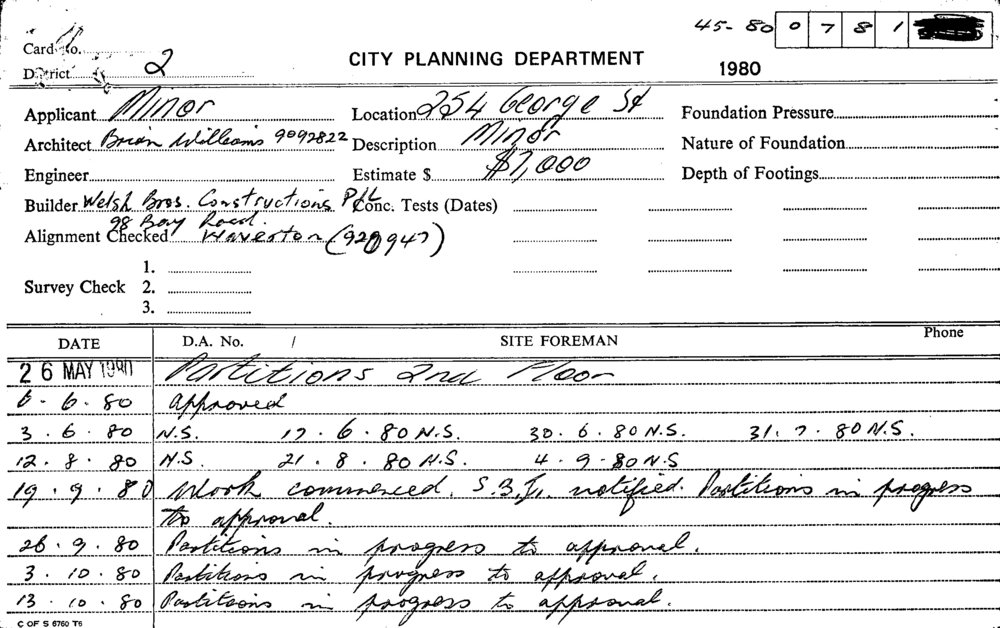 45-80 0 7 8 1
Card No.
District 2
CITY PLANNING DEPARTMENT
1980
Applicant Minor
Location 254 George St
Foundation Pressure
Architect Brian Williams 9092822
Description Minor
Nature of Foundation
Engineer
Estimate $ $7,000
Depth of Footings
Builder Welsh Bros. Constructions P/L
Conc. Tests (Dates)
98 Bay Road.
Alignment Checked Waverton (920947)
1.
Survey Check 2.
3.
DATE D.A. No. / SITE FOREMAN Phone
26 MAY 1980 Partitions 2nd Floor
6.6.80 approved
3.6.80 N.S. 17.6.80 N.S. 30.6.80 N.S. 31.7.80 N.S.
12.8.80 N.S. 21.8.80 N.S. 4.9-80 N.S
19.9.80 Work commenced. notified. Partitions in progress
to approval.
26.9.80 Partitions in progress to approval.
3.10.80 Partitions in progress to approval.
13.10.80 Partitions in progress to approval.
C OF S 6760 T6